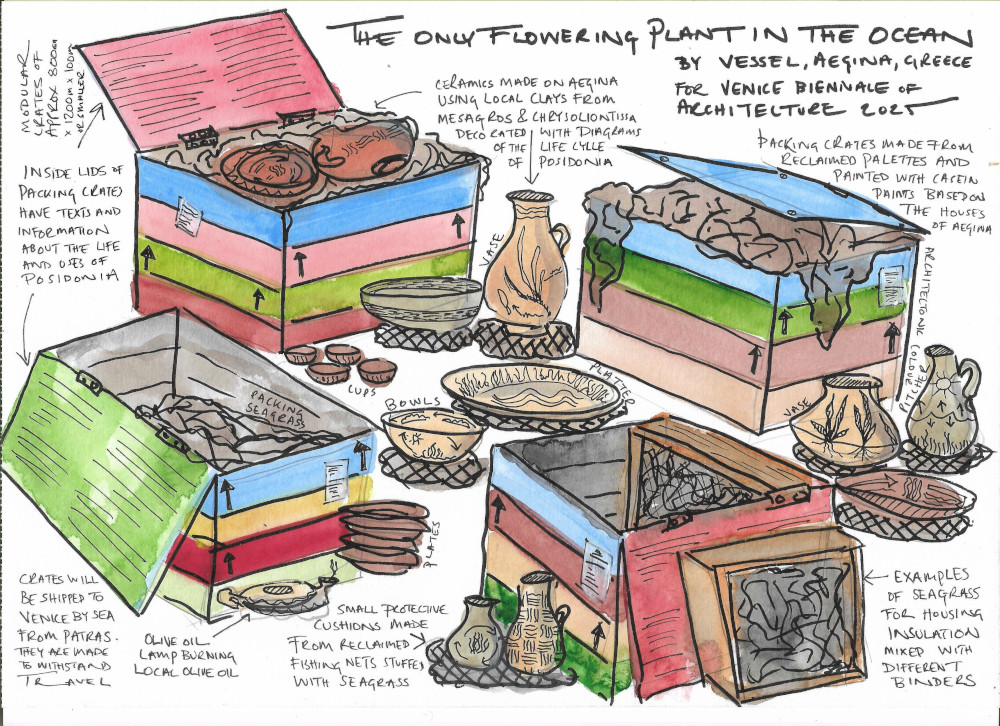 THE ONLY FLOWERING PLANT IN THE OCEAN
BY VESSEL, AEGINA, GREECE
FOR VENICE BIENNALE OF
ARCHITECTURE 2025
MODULAR
CRATES OF
APPROX 800cm
x 1200m x 100cm
OR SMALLER
CERAMICS MADE ON AEGINA
USING LOCAL CLAYS FROM
MESAGROS & CHRYSOLIONTISSA
DECORATED WITH DIAGRAMS
OF THE LIFE CYCLE
OF POSIDONIA
PACKING CRATES MADE FROM
RECLAIMED PALETTES AND
PAINTED WITH CASEIN
PAINTS BASED ON
THE HOUSES
OF AEGINA
INSIDE LIDS OF
PACKING CRATES
HAVE TEXTS AND
INFORMATION
ABOUT THE LIFE
AND USES OF
POSIDONIA
VASE
ARCHITECTONIC COLOUR
CUPS
PLATTER
PACKING
SEAGRASS
BOWLS
VASE
PITCHER
PLATES
CRATES WILL
BE SHIPPED TO
VENICE BY SEA
FROM PATRAS.
THEY ARE MADE
TO WITHSTAND
TRAVEL
OLIVE OIL
LAMP BURNING
LOCAL OLIVE OIL
SMALL PROTECTIVE
CUSHIONS MADE
FROM RECLAIMED
FISHING NETS STUFFED
WITH SEAGRASS
EXAMPLES
OF SEAGRASS
FOR HOUSING
INSULATION
MIXED WITH
DIFFERENT
BINDERS